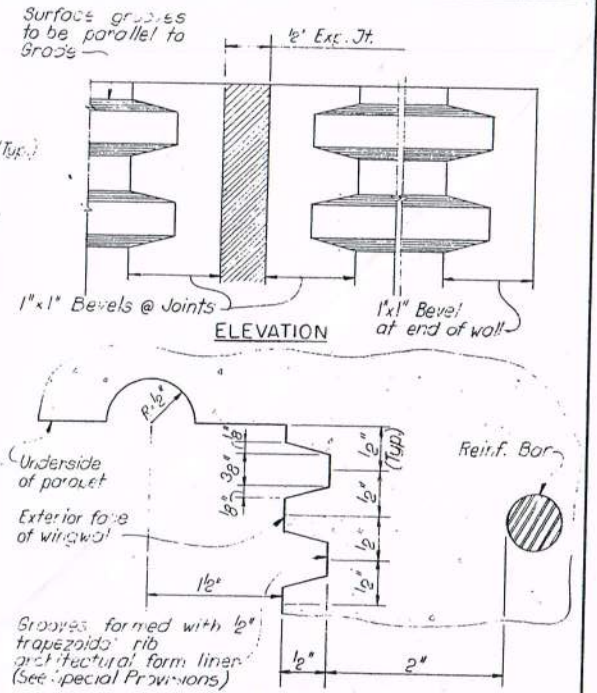 Surface grooves
to be parallel to
Grade
½" Exp. Jt.
(Typ.)
1"x1" Bevels @ Joints
1"x1" Bevel
at end of wall
ELEVATION
R=½"
Underside
of parapet
Exterior face
of wingwall
⅛"
⅜"
⅛"
½"
(Typ.)
½"
½"
½"
Reinf. Bar
1½"
½"
2"
Grooves formed with ½"
trapezoidal rib
architectural form liner
(See Special Provisions)